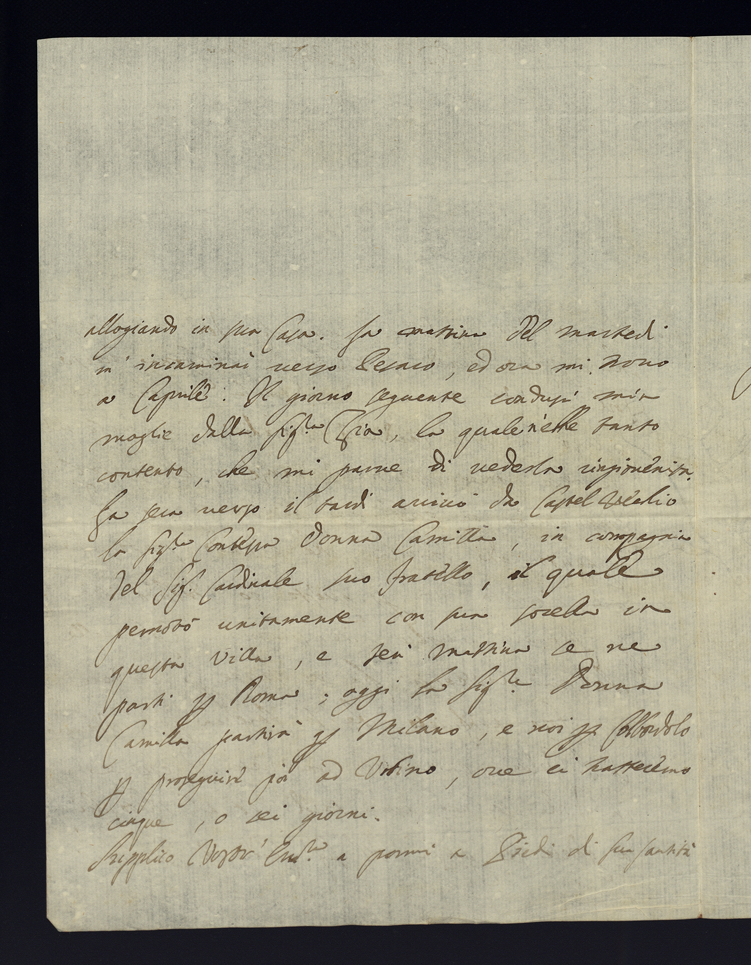 allogiando in sua Casa. La mattina del martedì
m'incaminai verso Pesaro, ed ora mi trovo
a Caprile. Il giorno seguente condussi mia
moglie dalla Sig.ra Zia, la quale n'ebbe tanto
contento, che mi parve di vederla ringiovenita.
La sera verso il tardi arrivò da Castel Vecchio
la Sig.ra Contessa Donna Camilla, in compagnia
del Sig. Cardinale suo fratello, il quale
pernotò unitamente con sua sorella in
questa Villa, e jeri mattina se ne
partì p Roma; oggi la Sig.ra Donna
Camilla partirà p Milano, e noi p Colbordolo
p proseguire poi ad Urbino, ove ci tratteremo
cinque, o sei giorni.
Supplico Vostra Em.za a pormi a Piedi di Sua Santità